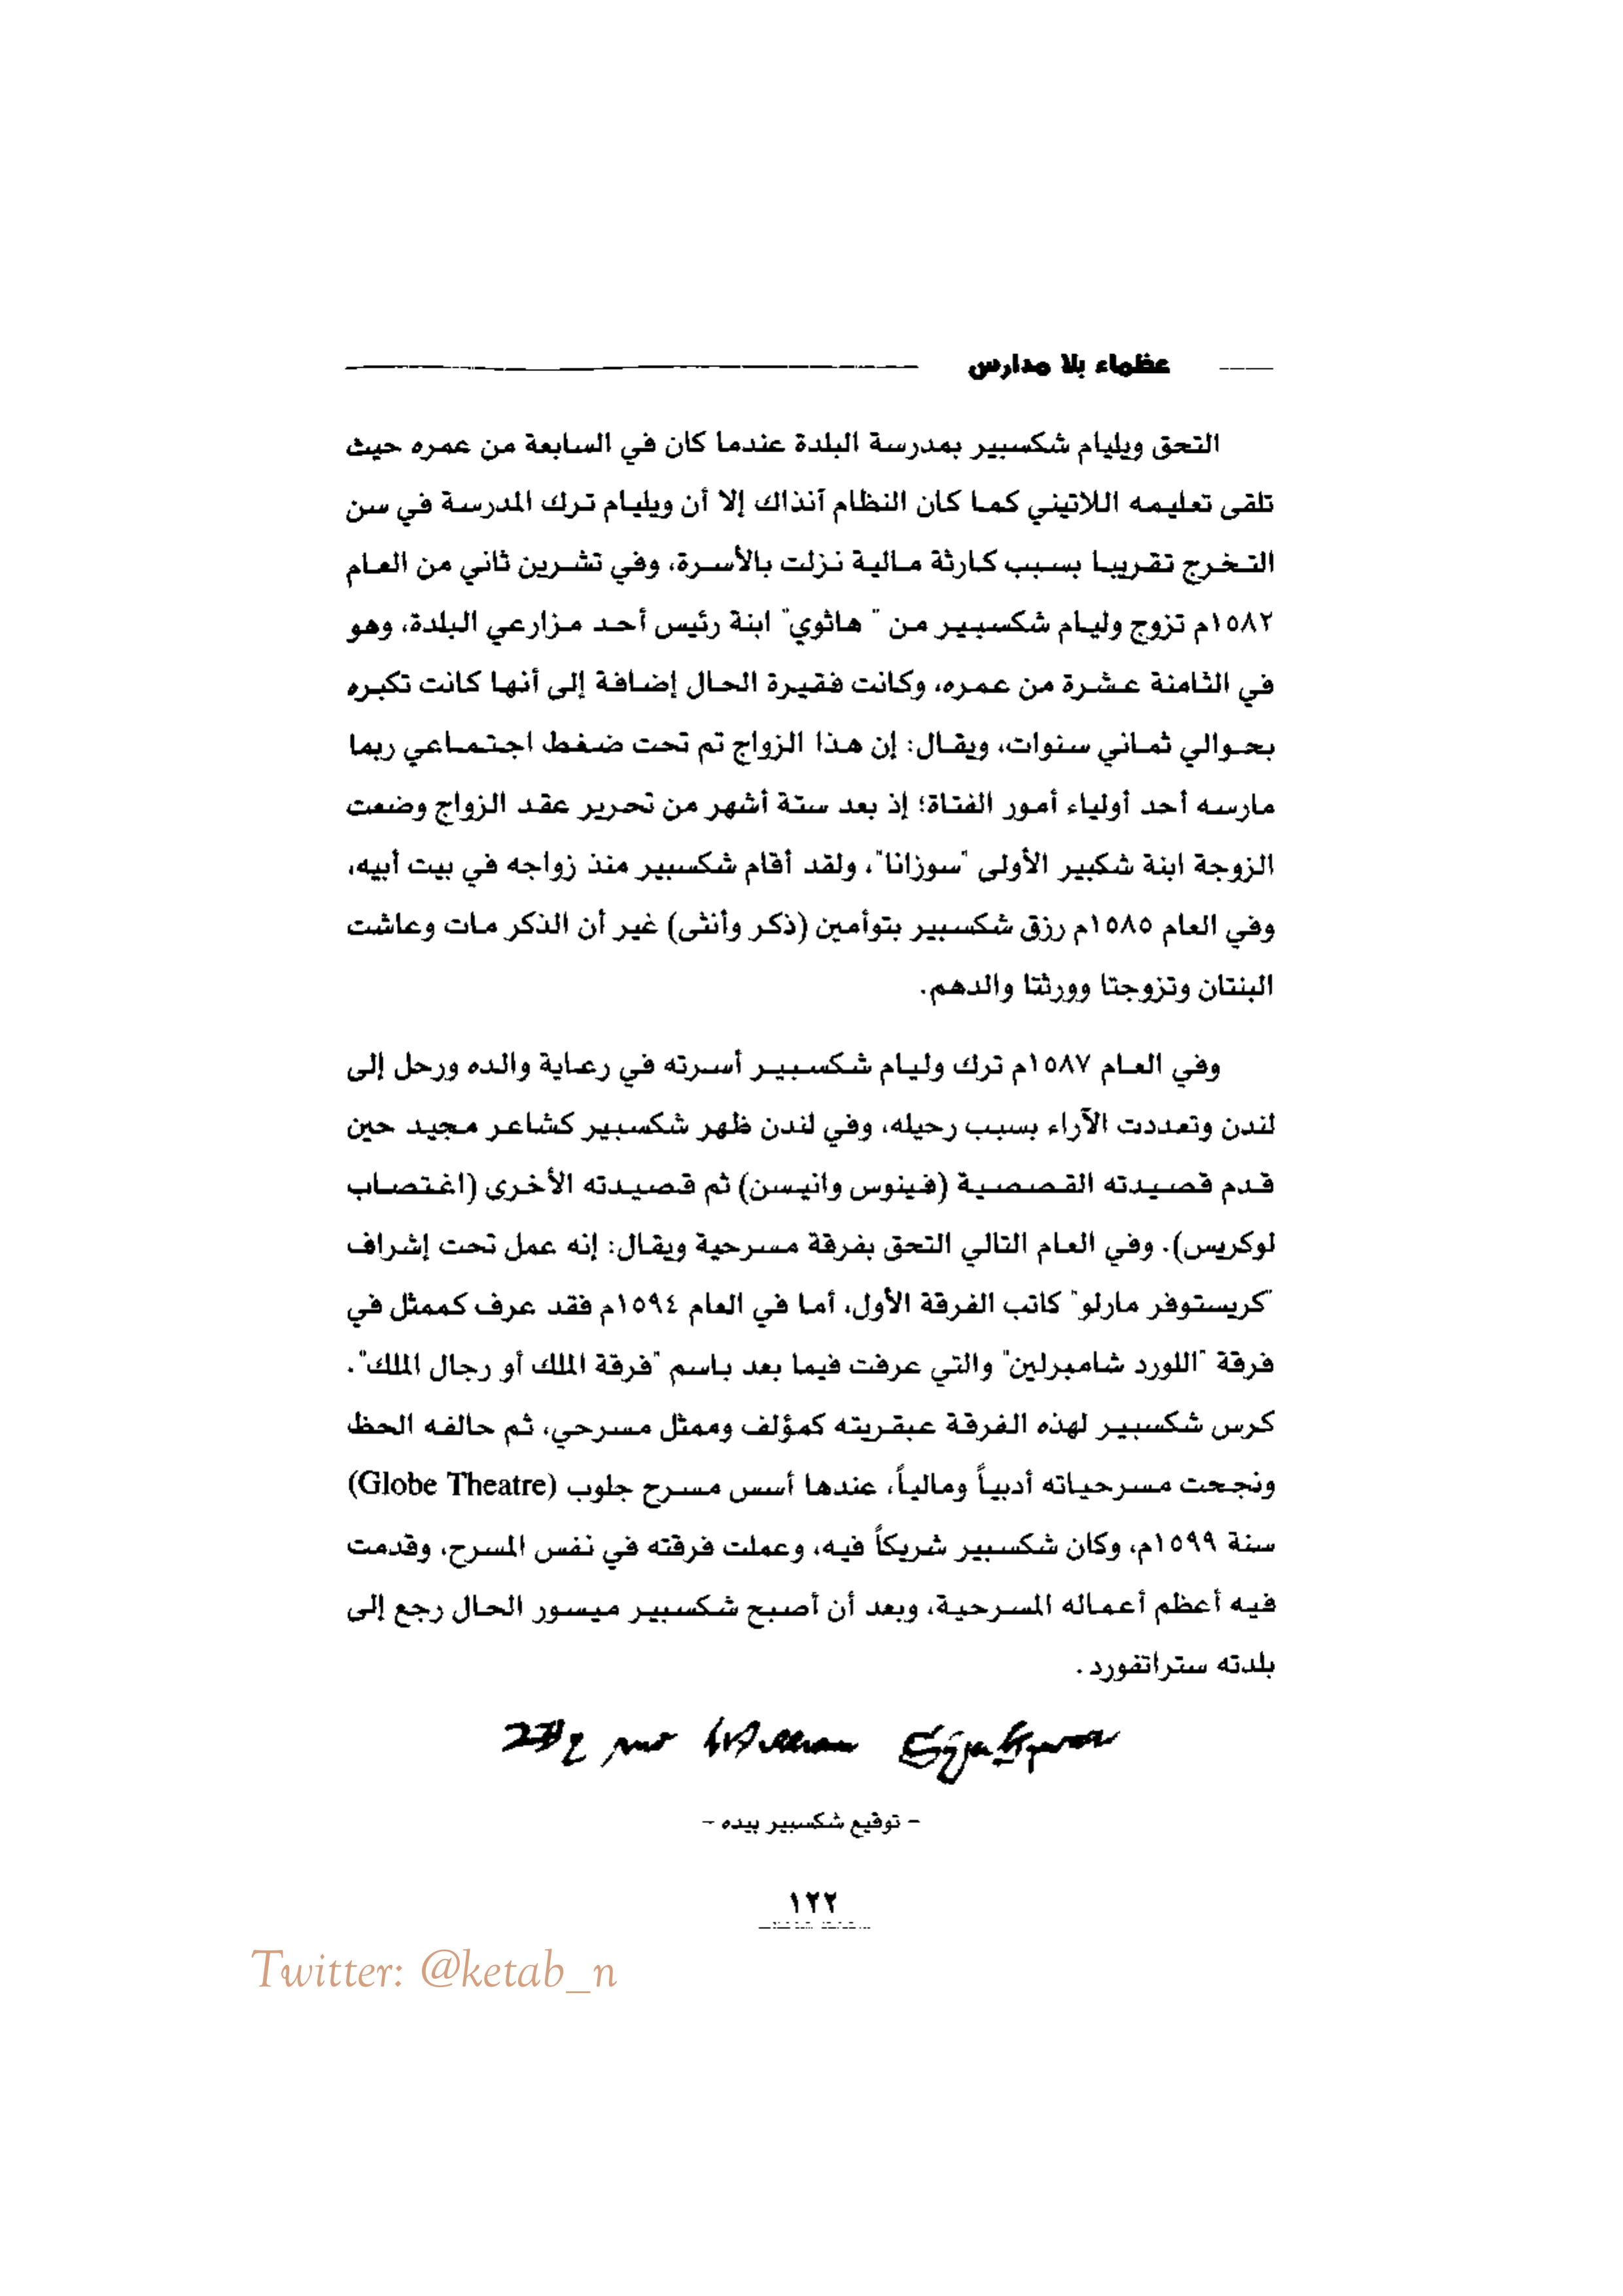 عظماء بلا مدارس
التحق ويليام شكسبير بمدرسة البلدة عندما كان في السابعة من عمره حيث
تلقى تعليمه اللاتيني كما كان النظام آنذاك إلا أن ويليام ترك المدرسة في سن
التخرج تقريبا بسبب كارثة مالية نزلت بالأسرة، وفي تشرين ثاني من العام
١٥٨٢م تزوج وليام شكسبير من " هاثوي" ابنة رئيس أحد مزارعي البلدة، وهو
في الثامنة عشرة من عمره، وكانت فقيرة الحال إضافة إلى أنها كانت تكبره
بحوالي ثماني سنوات، ويقال: إن هذا الزواج تم تحت ضغط اجتماعي ربما
مارسه أحد أولياء أمور الفتاة؛ إذ بعد ستة أشهر من تحرير عقد الزواج وضعت
الزوجة ابنة شكبير الأولى "سوزانا"، ولقد أقام شكسبير منذ زواجه في بيت أبيه،
وفي العام ١٥٨٥م رزق شكسبير بتوأمين (ذكر وأنثى) غير أن الذكر مات وعاشت
البنتان وتزوجتا وورثتا والدهم.
وفي العام ١٥٨٧م ترك وليام شكسبير أسرته في رعاية والده ورحل إلى
لندن وتعددت الآراء بسبب رحيله، وفي لندن ظهر شكسبير كشاعر مجيد حين
قدم قصيدته القصصية (فينوس وانيسن) ثم قصيدته الأخرى (اغتصاب
لوكريس). وفي العام التالي التحق بفرقة مسرحية ويقال: إنه عمل تحت إشراف
"كريستوفر مارلو" كاتب الفرقة الأول، أما في العام ١٥٩٤م فقد عرف كممثل في
فرقة "اللورد شامبرلين" والتي عرفت فيما بعد باسم "فرقة الملك أو رجال الملك".
كرس شكسبير لهذه الفرقة عبقريته كمؤلف وممثل مسرحي، ثم حالفه الحظ
ونجحت مسرحياته أدبياً ومالياً، عندها أسس مسرح جلوب (Globe Theatre)
سنة ١٥٩٩م، وكان شكسبير شريكاً فيه، وعملت فرقته في نفس المسرح، وقدمت
فيه أعظم أعماله المسرحية، وبعد أن أصبح شكسبير ميسور الحال رجع إلى
بلدته ستراتفورد.
- توقيع شكسبير بيده -
١٢٢
Twitter: @ketab_n